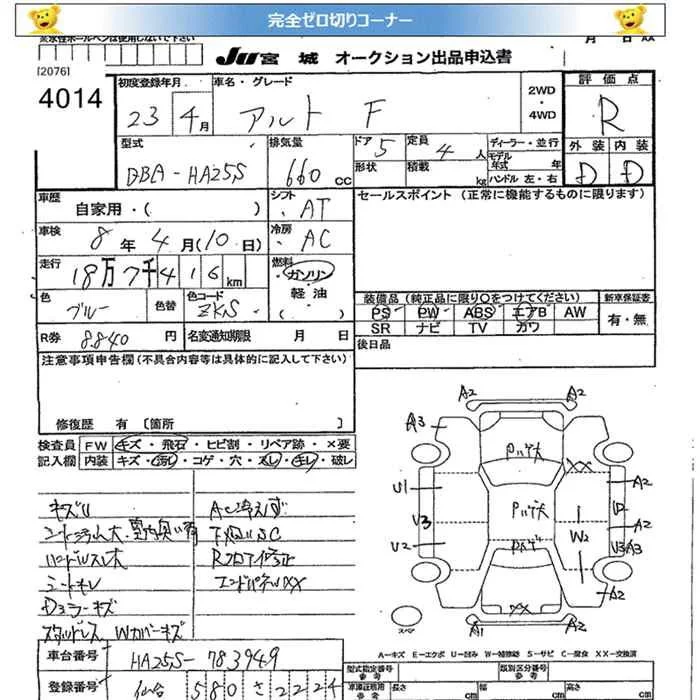 完全ゼロ切りコーナー
月 日 AA
[2076]
JU 宮城 オークション出品申込書
4014
初度登録年月 23年 4月
車名・グレード アルト F
2WD・4WD
評価点 R
型式 DBA-HA25S
排気量 660cc
ドア 5
形状
定員 4人
積載 kg
ディーラー・並行
モデル年式 年
ハンドル 左・右
外装 D 内装 D
車歴 自家用・( )
シフト AT
セールスポイント (正常に機能するものに限ります)
車検 8年 4月(10日)
冷房 AC
走行 18万7千416km
燃料 ガソリン・軽油 ( )
色 ブルー 色替
色コード ZKS
装備品 (純正品に限り○をつけてください)
新車保証書
PS PW ABS エアB AW
有・無
SR ナビ TV カワ
R券 8840円
名変通知期限 月 日
後日品
注意事項申告欄 (不具合内容等は具体的に記入して下さい)
修復歴 有 〔箇所 〕
検査員記入欄
FW キズ・飛石・ヒビ割・リペア跡・×要
内装 キズ・汚レ・コゲ・穴・スレ・キレ・破レ
キズU
ハンドルスレ大
シートキレ
スタッドレス Wカバーキズ
AC冷えず
エンドパネルXX
A2 A2
A3
XX
U1 A2
U3 A2
U2 W2 U3 A3
A2
A1 A2
スペア
A-キズ E-エクボ U-凹み W-補修跡 S-サビ C-腐食 XX-交換済
車台番号 HA25S-783949
登録番号 仙台 580 さ 2224
型式指定番号 参考
類別区分番号 参考
車庫証明用 参考 長さ cm 幅 cm 高さ cm